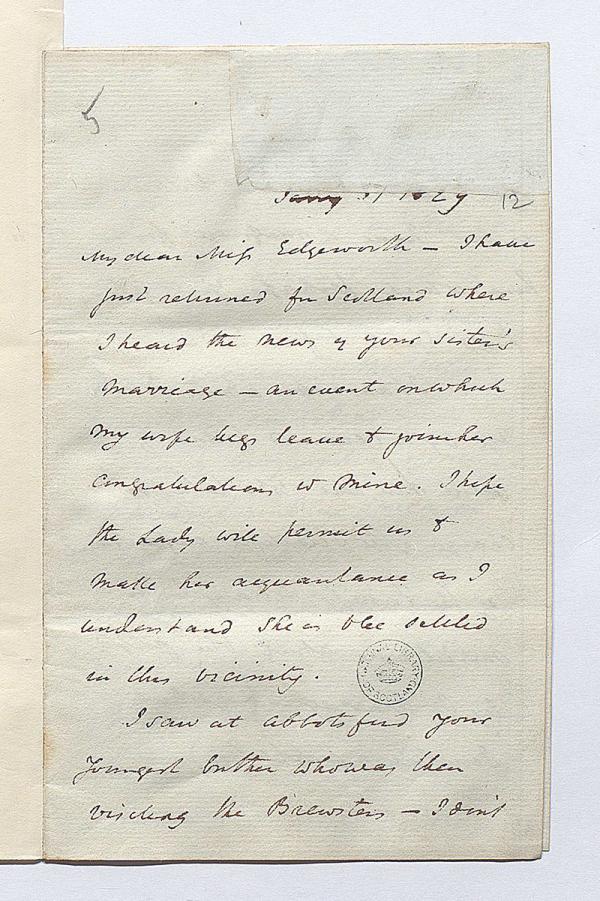 5
Jany 31 1829 12
My dear Miss Edgeworth – I have
just returned fm Scotland where
I heard the news of your sister's
marriage – an event on which
my wife begs leave to join her
congratulations to mine. I hope
the Lady will permit us to
make her acquaintance as I
understand she is to be settled
in this vicinity.
NATIONAL LIBRARY
OF SCOTLAND
I saw at Abbotsford your
youngest brother who was then
visiting the Brewsters – I don't